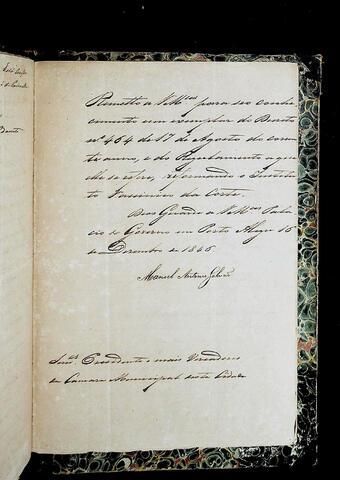 Remetto a V.Mces para seo conhe
cimento um exemplar do Decreto
nº 464 de 17 de Agosto do corren
te anno, e do Regulamento a que
elle se refere, reformando o Institu
to Vaccinico da Corte.
Deos Guarde a V.Mces Pala
cio do Governo em Porto Alegre 16
de Dezembro de 1846.
Manuel Antonio
Snres Presidente e mais Vereadores
da Camara Municipal desta Cidade